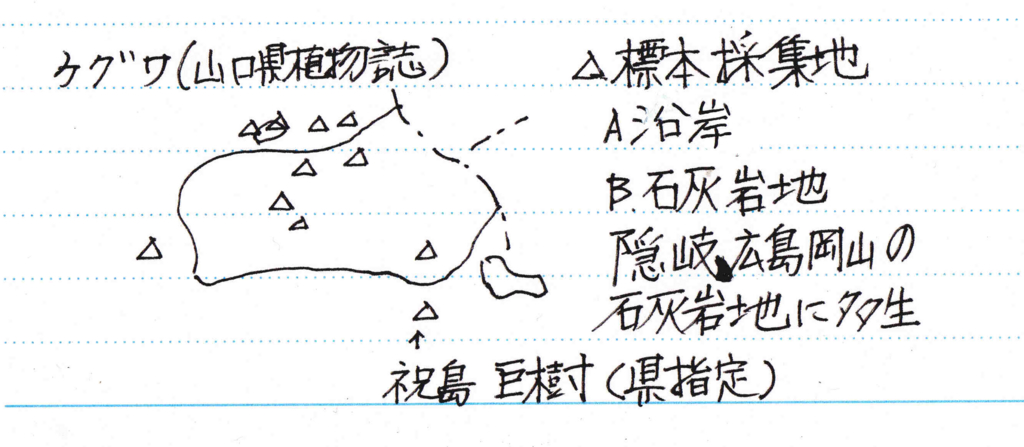 ケグワ(山口県植物誌)
△標本採集地
A沿岸
B.石灰岩地
隠岐、広島岡山の
石灰岩地に多生
↑
祝島 巨樹(県指定)